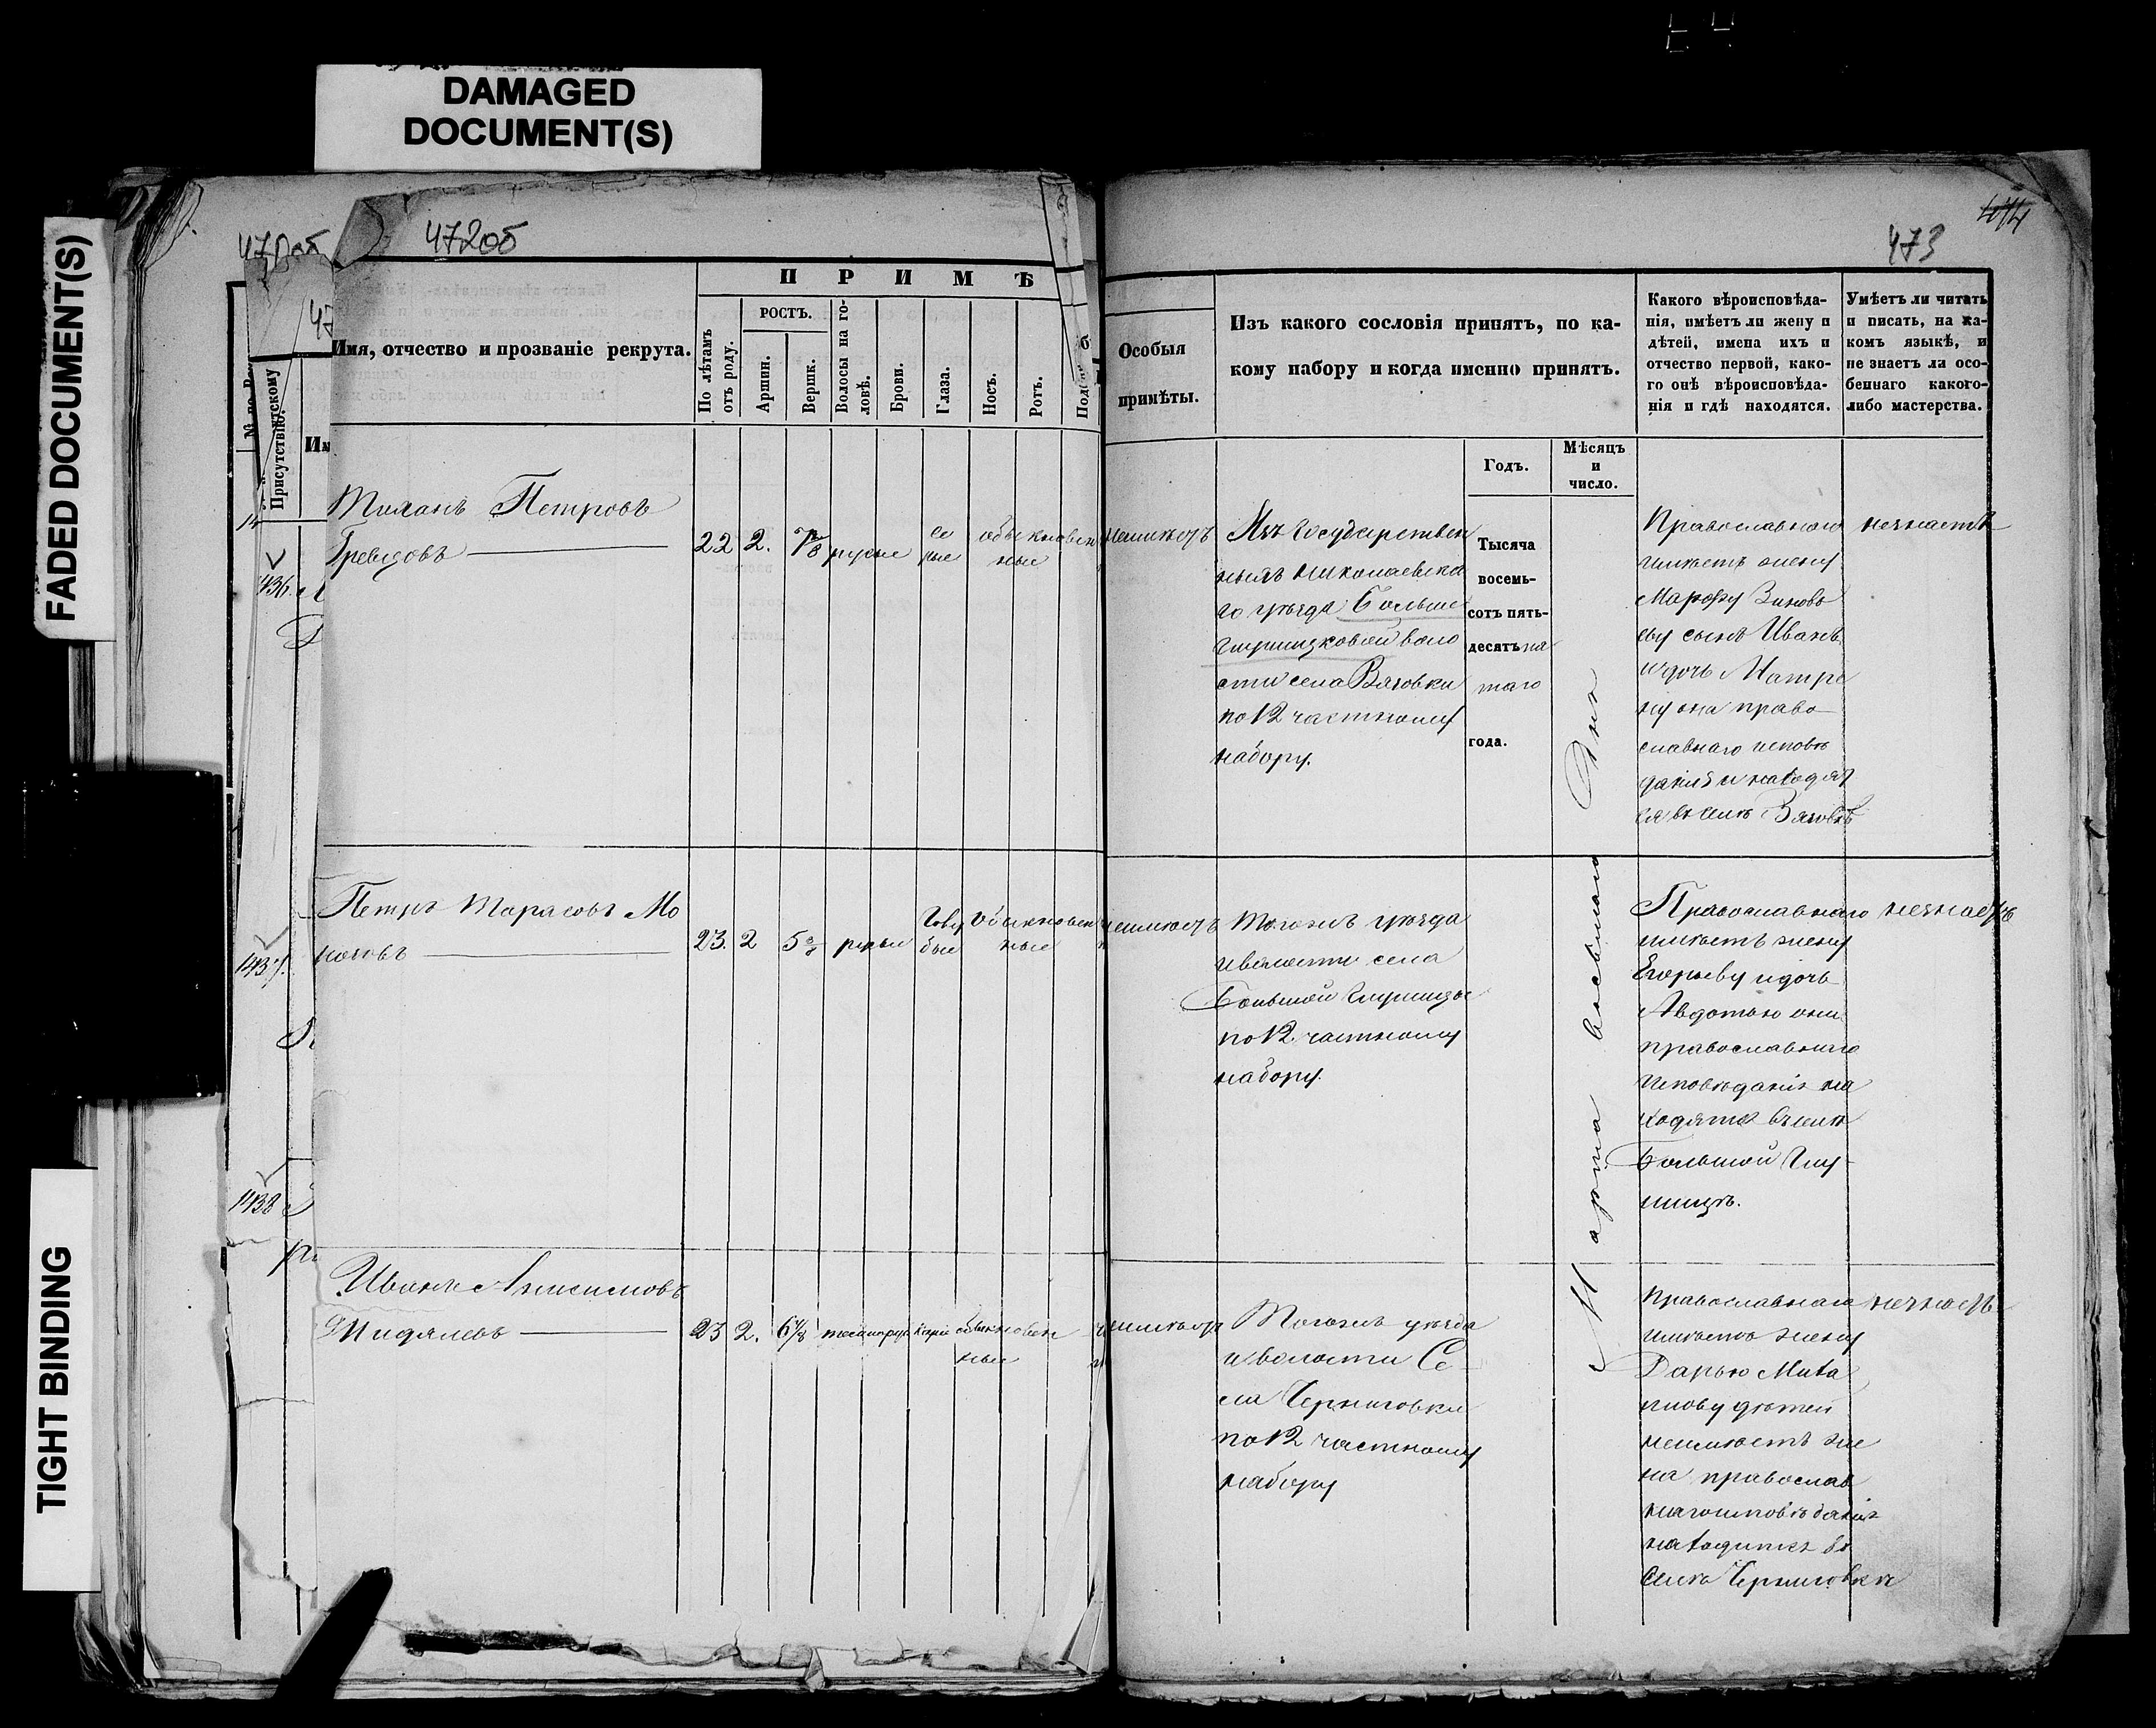 DAMAGED
DOCUMENT(S)
FADED DOCUMENT(S)
TIGHT BINDING
472об
473
474
Присутствію.
Имя, отчество и прозваніе рекрута.
П Р И М Ѣ
По лѣтамъ
отъ роду.
РОСТЪ.
Аршин.
Вершк.
Волосы на го-
ловѣ.
Брови.
Глаза.
Носъ.
Ротъ.
Особыя
примѣты.
Изъ какого сословія принятъ, по ка-
кому набору и когда именно принятъ.
Годъ.
Мѣсяцъ
и
число.
Какого вѣроисповѣда-
нія, имѣетъ ли жену и
дѣтей, имена ихъ и
отчество первой, како-
го онѣ вѣроисповѣда-
нія и гдѣ находятся.
Умѣетъ ли читать
и писать, на ка-
комъ языкѣ, и
не знаетъ ли осо-
беннаго какого-
либо мастерства.
436.
Петровъ
22 2. русые
се
рые
обыкновен
ные
неимѣетъ
Изъ Государствен
ныхъ Николаевска
го уѣзда Больше
глушицковой воло
сти села Вязовки
по 12 частному
набору.
Тысяча
восемь-
сотъ пять-
десять пя
таго
года.
Марта восьмого дня
Православнаго
имѣетъ жену
Марфу Зиновь
еву сына Ивана
и дочь Матре
ну она право
славнаго исповѣ
данія и находят
ся въ селѣ Вязовкѣ
незнаетъ
1437.
Петръ Тарасовъ Мо
23. 2 5 русые
Голу
бые
обыкновен
ные
неимѣетъ
Тогожъ уѣзда
и волости села
Большой Глушицы
по 12 частному
набору.
Православнаго
имѣетъ жену
Егорьеву и дочь
Авдотью они
православнаго
исповѣданія на
ходятся въ селѣ
Большой Глу-
шицѣ.
незнаетъ
1438
Иванъ Анисимовъ
23 2. 6 4/8 темнорус карие обыкновен
ные
неимѣетъ
Тогожъ уѣзда
и волости Се
ла Черниговки
по 12 частному
набору
Православнаго
имѣетъ жену
Дарью Миха
йлову дѣтей
неимѣетъ же
на православ
наго исповѣданія
находится въ
селѣ Черниговкѣ
незнаетъ